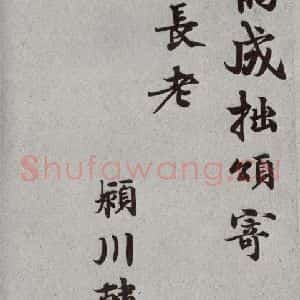 成拙頌寄
長老
潁川韓
Shufawang.cn